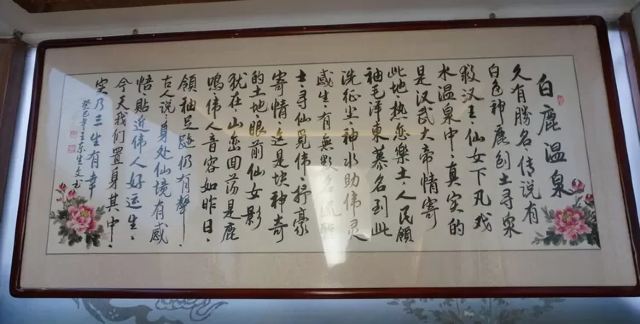 白鹿温泉
久有勝名传说有
白色神鹿刨土寻泉
救汉王仙女下凡戏
水温泉中，真实的
是汉武大帝情寄
此地，热恋樂土，人民领
袖毛泽東慕名到此
洗征尘神水助伟灵
感生有無數名流
士，寻仙觅伟，抒豪
寄情，这是块神奇
的土地眼前仙女影
犹在山峦回荡是鹿
鸣伟人音容如昨日，
领袖足迹仍有聲，
古人说，身处仙境有感
悟，贴近伟人好运生，
今天我们置身其中，
实乃三生有幸
癸巳年 东生文书